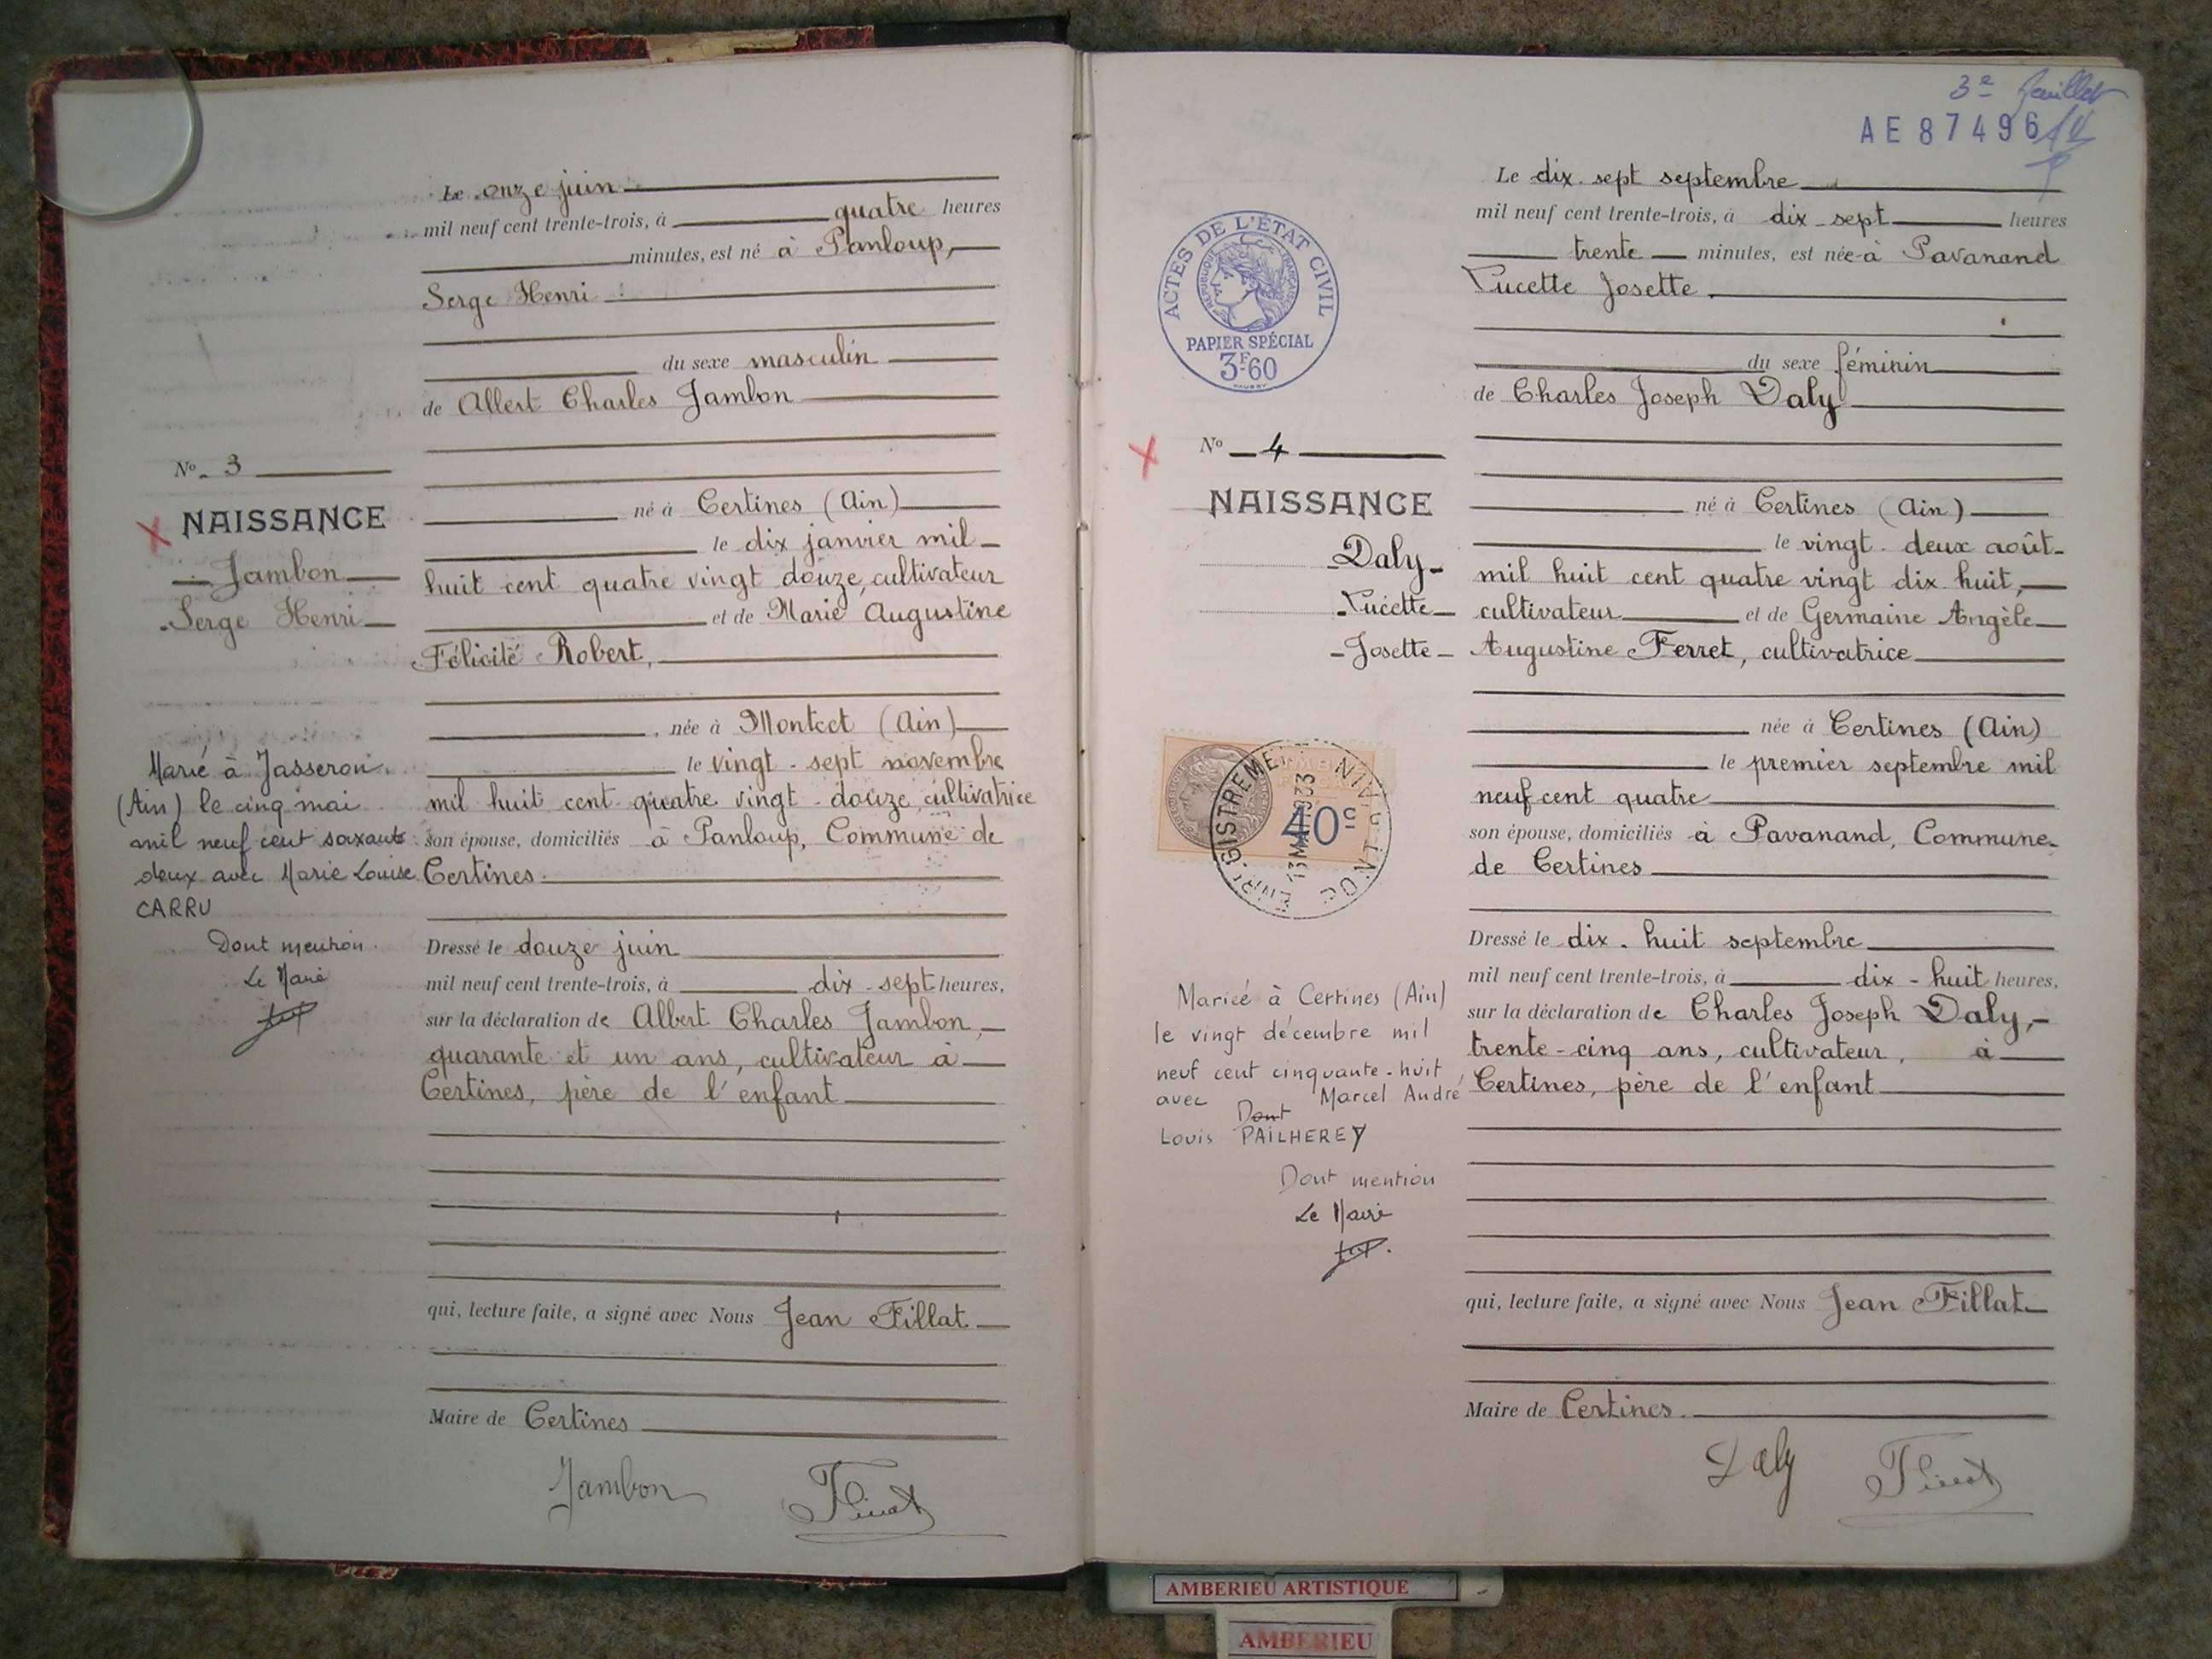 Le onze juin
mil neuf cent trente-trois, à quatre heures
minutes, est né à Panloup,
Serge Henri
du sexe masculin
de Albert Charles Jambon
No 3
NAISSANCE
Jambon
Serge Henri
né à Certines (Ain)
le dix janvier mil
huit cent quatre vingt douze, cultivateur
et de Marie Augustine
Félicité Robert,
, née à Montcet (Ain)
le vingt-sept novembre
mil huit cent quatre vingt-douze, cultivatrice
son épouse, domiciliés à Panloup, Commune de
Certines.
Marié à Jasseron
(Ain) le cinq mai
mil neuf cent soixante
deux avec Marie Louise
CARRU
Dont mention
Le Maire
Dressé le douze juin
mil neuf cent trente-trois, à dix-sept heures,
sur la déclaration de Albert Charles Jambon,
quarante et un ans, cultivateur à
Certines, père de l'enfant
qui, lecture faite, a signé avec Nous Jean Fillat
Maire de Certines
Jambon
3e feuillet
AE 87496
Le dix-sept septembre
mil neuf cent trente-trois, à dix-sept heures
trente minutes, est née à Pavanand
Lucette Josette
du sexe féminin
de Charles Joseph Daly
ACTES DE L'ÉTAT CIVIL
RÉPUBLIQUE FRANÇAISE
PAPIER SPÉCIAL
3F60
No 4
NAISSANCE
Daly
Lucette
Josette
né à Certines (Ain)
le vingt-deux août
mil huit cent quatre vingt dix huit,
cultivateur et de Germaine Angèle
Augustine Ferret, cultivatrice
née à Certines (Ain)
le premier septembre mil
neuf cent quatre
son épouse, domiciliés à Pavanand, Commune
de Certines
40c
Dressé le dix-huit septembre
mil neuf cent trente-trois, à dix-huit heures,
sur la déclaration de Charles Joseph Daly,
trente-cinq ans, cultivateur, à
Certines, père de l'enfant
Mariée à Certines (Ain)
le vingt décembre mil
neuf cent cinquante-huit
avec Marcel André
Dont
Louis PAILHEREY
Dont mention
Le Maire
qui, lecture faite, a signé avec Nous Jean Fillat
Maire de Certines
Daly
AMBERIEU ARTISTIQUE
AMBERIEU